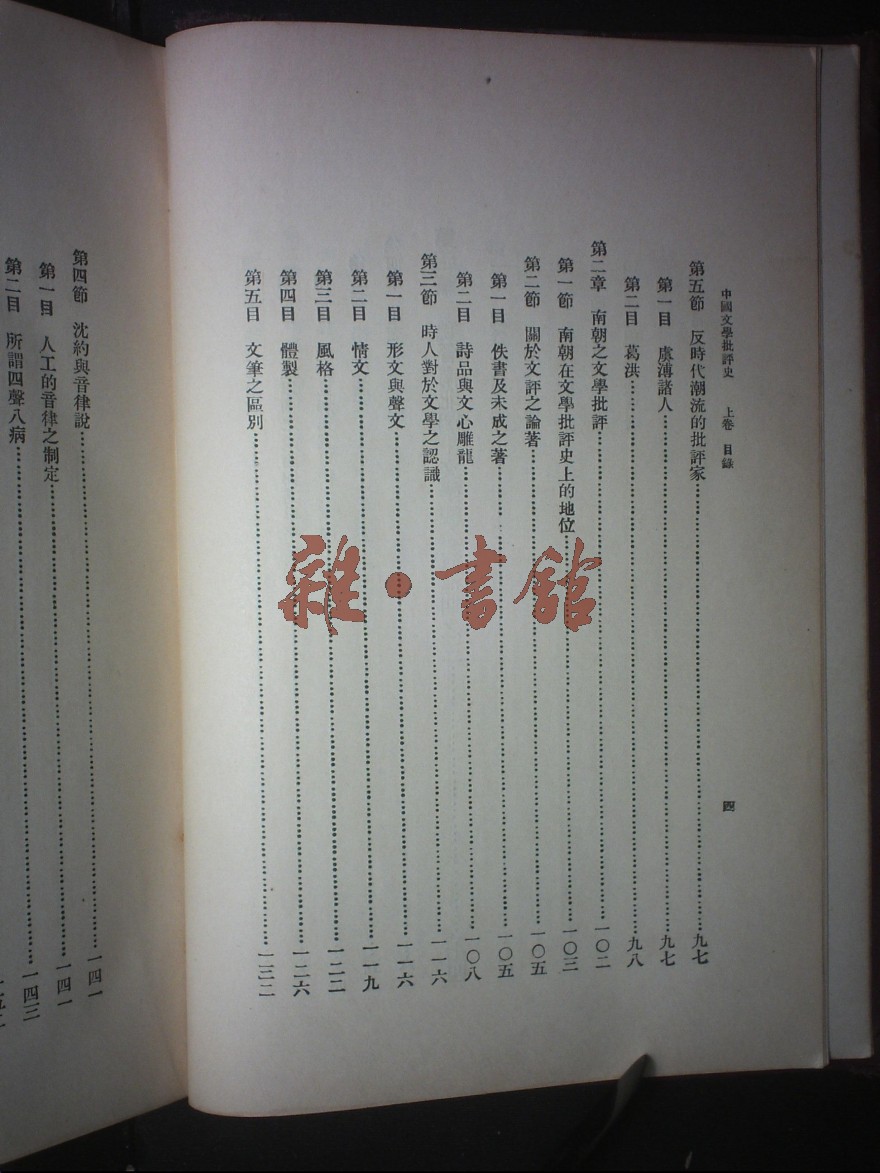 中國文學批評史　上卷　目錄
四
第五節　反時代潮流的批評家……九七
第一目　虞溥諸人……九七
第二目　葛洪……九八
第二章　南朝之文學批評……一〇二
第一節　南朝在文學批評史上的地位……一〇三
第二節　關於文評之論著……一〇五
第一目　佚書及未成之著……一〇五
第二目　詩品與文心雕龍……一〇八
第三節　時人對於文學之認識……一一六
第一目　形文與聲文……一一六
第二目　情文……一一九
第三目　風格……一二二
第四目　體製……一二六
第五目　文筆之區別……一三二
第四節　沈約與音律說……一四一
第一目　人工的音律之制定……一四一
第二目　所謂四聲八病……一四三
雜・書館